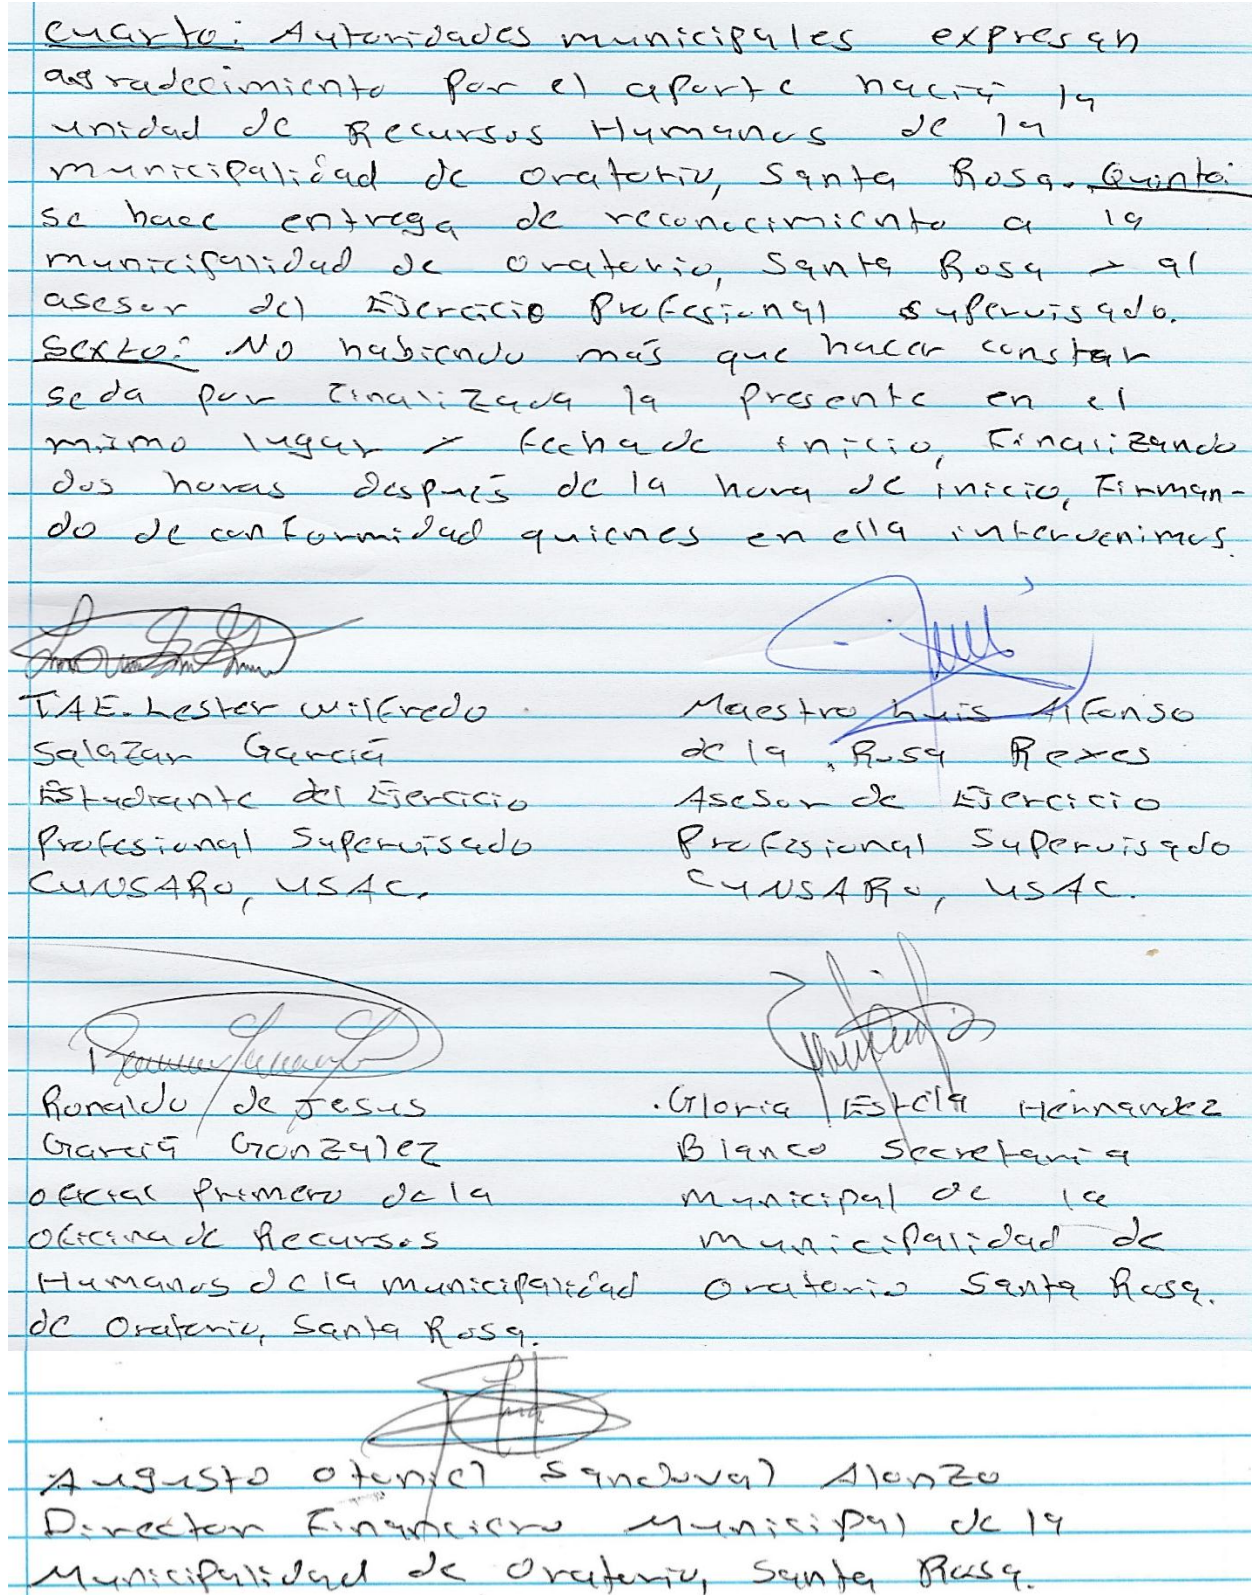 Cuarto: Autoridades municipales expresan
agradecimiento por el aporte hacia la
unidad de Recursos Humanos de la
municipalidad de Oratorio, Santa Rosa. Quinto:
se hace entrega de reconocimiento a la
municipalidad de Oratorio, Santa Rosa y al
asesor del Ejercicio Profesional Supervisado.
Sexto: No habiendo más que hacer constar
se da por finalizada la presente en el
mismo lugar y fecha de inicio, Finalizando
dos horas después de la hora de inicio, Firman-
do de conformidad quienes en ella intervenimos.
T.A.E. Lester Wilfredo
Salazar García
Estudiante del Ejercicio
Profesional Supervisado
CUNSARO, USAC.
Maestro Luis Alfonso
de la Rosa Reyes
Asesor de Ejercicio
Profesional Supervisado
CUNSARO, USAC.
Ronaldo de Jesus
García Gonzalez
Oficial Primero de la
Oficina de Recursos
Humanos de la municipalidad
de Oratorio, Santa Rosa.
Gloria Estela Hernnandez
Blanco Secretaria
Municipal de la
Municipalidad de
Oratorio Santa Rosa.
Augusto Otoniel Sandoval Alonzo
Director Financiero Municipal de la
Municipalidad de Oratorio, Santa Rosa.